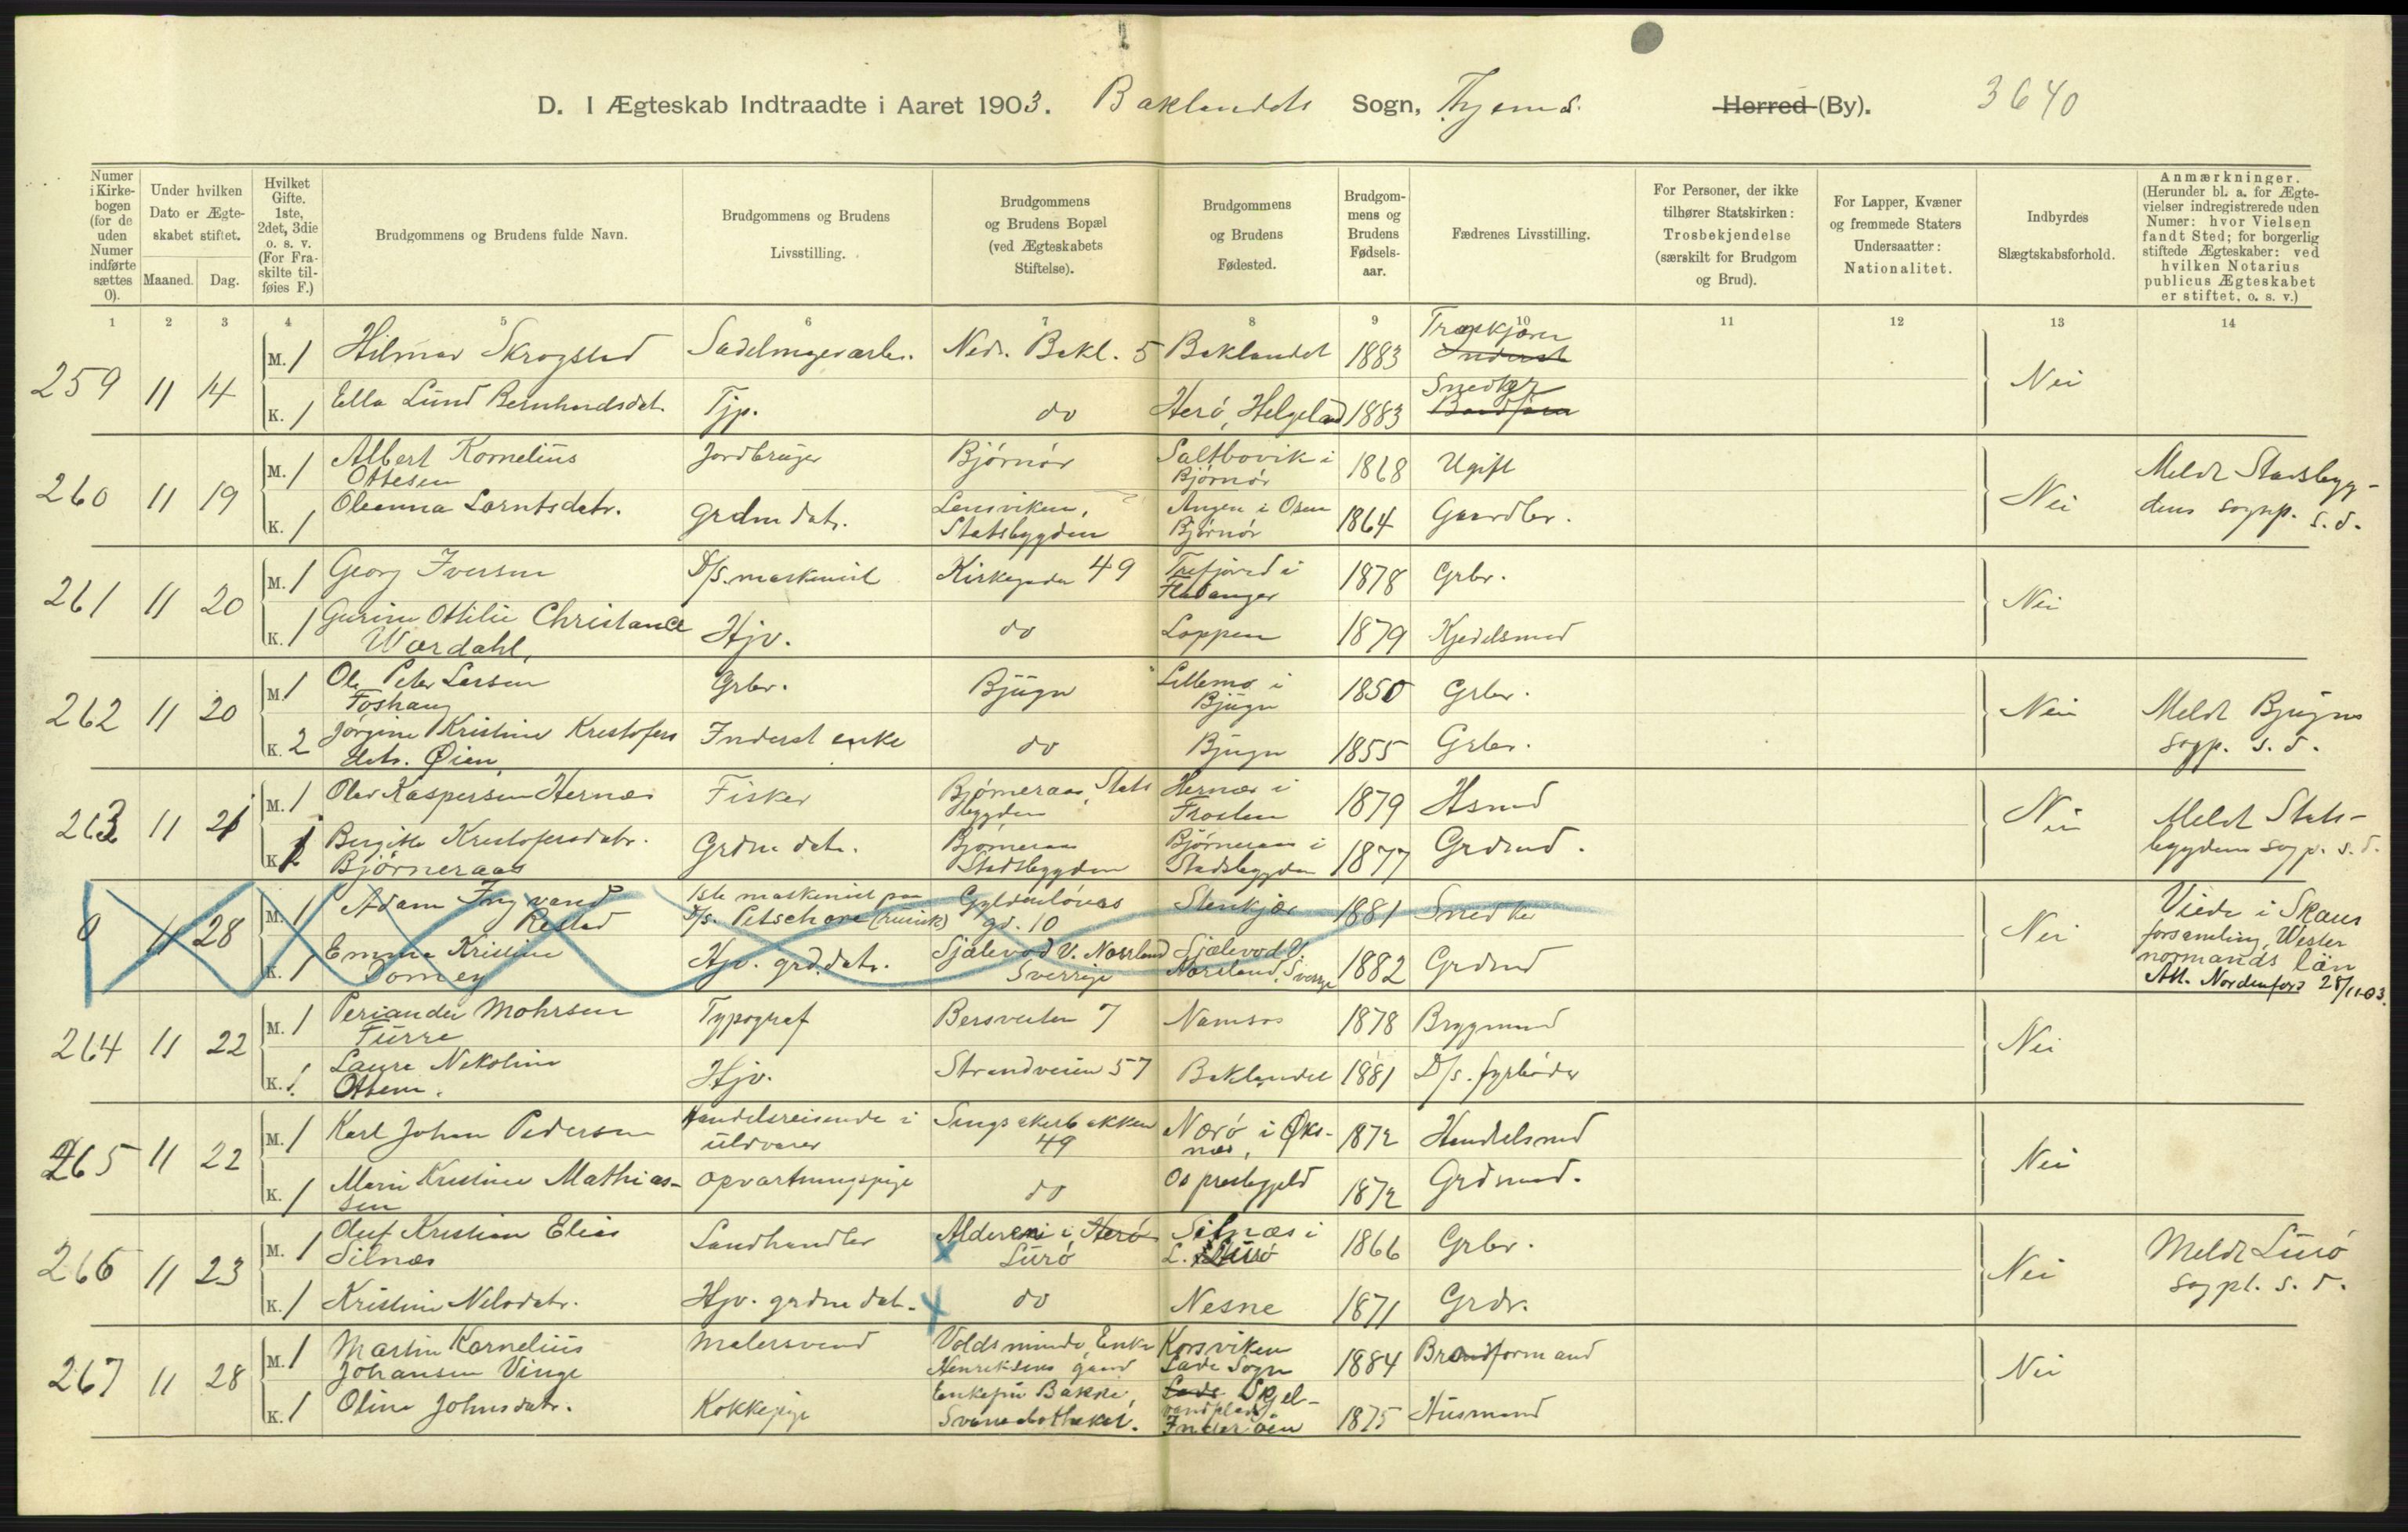 D. I Ægteskab Indtraadte i Aaret 1903. Baklandets Sogn, Thjems. Herred (By). 3640
Numer i Kirkebogen (for de uden Numer indførte sættes 0).
Under hvilken Dato er Ægteskabet stiftet.
Maaned. Dag.
Hvilket Gifte. 1ste, 2det, 3die o. s. v. (For Fraskilte tilføies F.)
Brudgommens og Brudens fulde Navn.
Brudgommens og Brudens Livsstilling.
Brudgommens og Brudens Bopæl (ved Ægteskabets Stiftelse).
Brudgommens og Brudens Fødested.
Brudgommens og Brudens Fødselsaar.
Fædrenes Livsstilling.
For Personer, der ikke tilhører Statskirken: Trosbekjendelse (særskilt for Brudgom og Brud).
For Lapper, Kvæner og fremmede Staters Undersaatter: Nationalitet.
Indbyrdes Slægtskabsforhold.
Anmærkninger. (Herunder bl. a. for Ægtevielser indregistrerede uden Numer: hvor Vielsen fandt Sted; for borgerlig stiftede Ægteskaber: ved hvilken Notarius publicus Ægteskabet er stiftet, o. s. v.)
1 2 3 4 5 6 7 8 9 10 11 12 13 14
259 11 14 M. 1 Hilmar Skrogstad Sadelmagerarb. Nedr. Bakl. 5 Baklandet 1883 Inderst Nei
K. 1 Ella Lund Bernhardsdat. Tjp. do Herö, Helgeland 1883 Snedker
260 11 19 M. 1 Albert Kornelius Ottesen Jordbruger Bjørnør Saltbovik i Bjørnør 1868 Ugift Nei Meldt Stadsbygdens sognp. s. d.
K. 1 Oleanna Larntsdatr. grdm datr. Lensviken, Statsbygden Angen i Osen Bjørnør 1864 Gaardbr.
261 11 20 M. 1 Georg Iversen D/s. maskinist Kirkegaden 49 Flatanger 1878 Grbr. Nei
K. 1 Gurine Ottilie Christance Wærdahl, Hjv. do Loppen 1879 Kjedelsmed
262 11 20 M 1 Ole Peter Larsen Foshaug Grbr. Bjugn Lillemo i Bjugn 1850 Grbr. Nei Meldt Bjugns sogp. s. d.
K. 2 Jørgine Kristine Kristofersdatr. Øien Inderst enke do Bjugn 1855 Grbr.
263 11 21 M. 1 Olav Kaspersen Hernes Fisker Bjørneraas, Statsbygden Hernæs i Frosten 1879 Hsmd Nei Meldt Statsbygdens sogp. s. d.
K 1 Bergitte Kristofersdatr. Bjørneraas Grdm datr. Bjørneraas Stadsbygden Bjørneraas i Stadsbygden 1877 Grdmd.
0 11 28 M. 1 Adam Ingvard Restad 1ste maskinist paa D/s. Petschora (russisk) Gyldenløves gd. 10 Stenkjær 1881 Snedker Nei Viede i Skaus forsamling, Wester normands län Att. Nordenfors 28/11 03.
K. 1 Emma Kristine Domey Hjv. grd. datr. Sjælevod V. Norrland Sverrige Sjælevod V. Norrland, Sverige 1882 Grdmd
264 11 22 M. 1 Periander Mohrsen Furre Typograf Bersveiten 7 Namsos 1878 Bryggmand Nei
K. 1 Laura Nikoline Ottem. Hjv. Strandveien 57 Baklandet 1881 D/s. fyrbøder
265 11 22 M. 1 Karl Johan Pedersen Handelsreisende i uldvarer Singsakerbakken 49 Nærö i Øksnæs, 1872 Handelsmd Nei
K. 1 Marie Kristine Mathiassen opvartningspige do Os prestegjeld 1872 Grdmd.
266 11 23 M. 1 Oluf Kristian Elias Silnæs Landhandler Alderen i Herö Lurö Silnæs i Lurö 1866 Grbr. Nei Meldt Lurö sogpl. s. d.
K. 1 Kristine Nilsdatr. Hjv. grdm dat. do Nesne 1871 Grdr.
267 11 28 M. 1 Martin Kornelius Johansen Vinge Malersvend Voldsminde, Enke Henriksens gaard Korsviken Lade Sogn 1884 Brandformand Nei
K. 1 Oline Johnsdatr. Kokkepige Enkefru Bakke, Svaneapotheket. Lade Skjelvandplads Inderøen 1875 Husmand